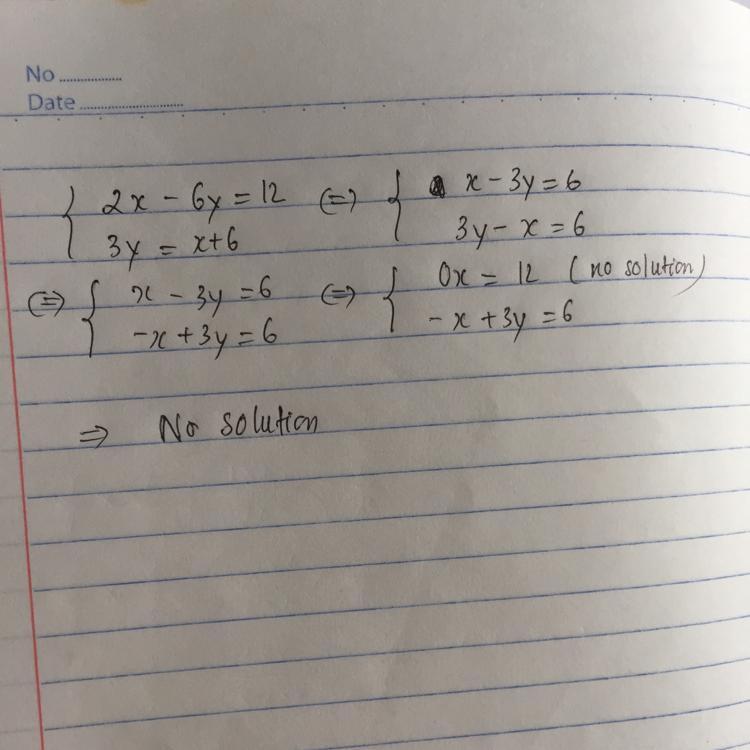 No
Date
2x - 6y = 12 (=) x - 3y = 6
3y = x+6 3y - x = 6
(=) x - 3y = 6 (=) 0x = 12 (no solution)
-x + 3y = 6 -x + 3y = 6
=> No solution